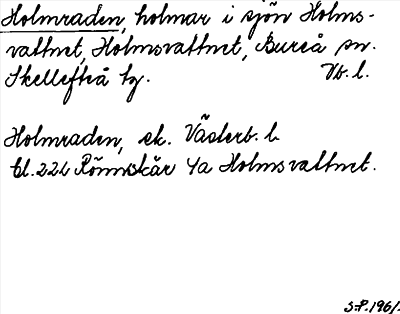 Holmraden, holmar i sjön Holms-
vattnet, Holmsvattnet, Bureå sn.
Skellefteå tg. Vb. l.
Holmraden, ek. Västerb. l.
bl. 226 Rönnskär 4a Holmsvattnet.
S.P. 1961.